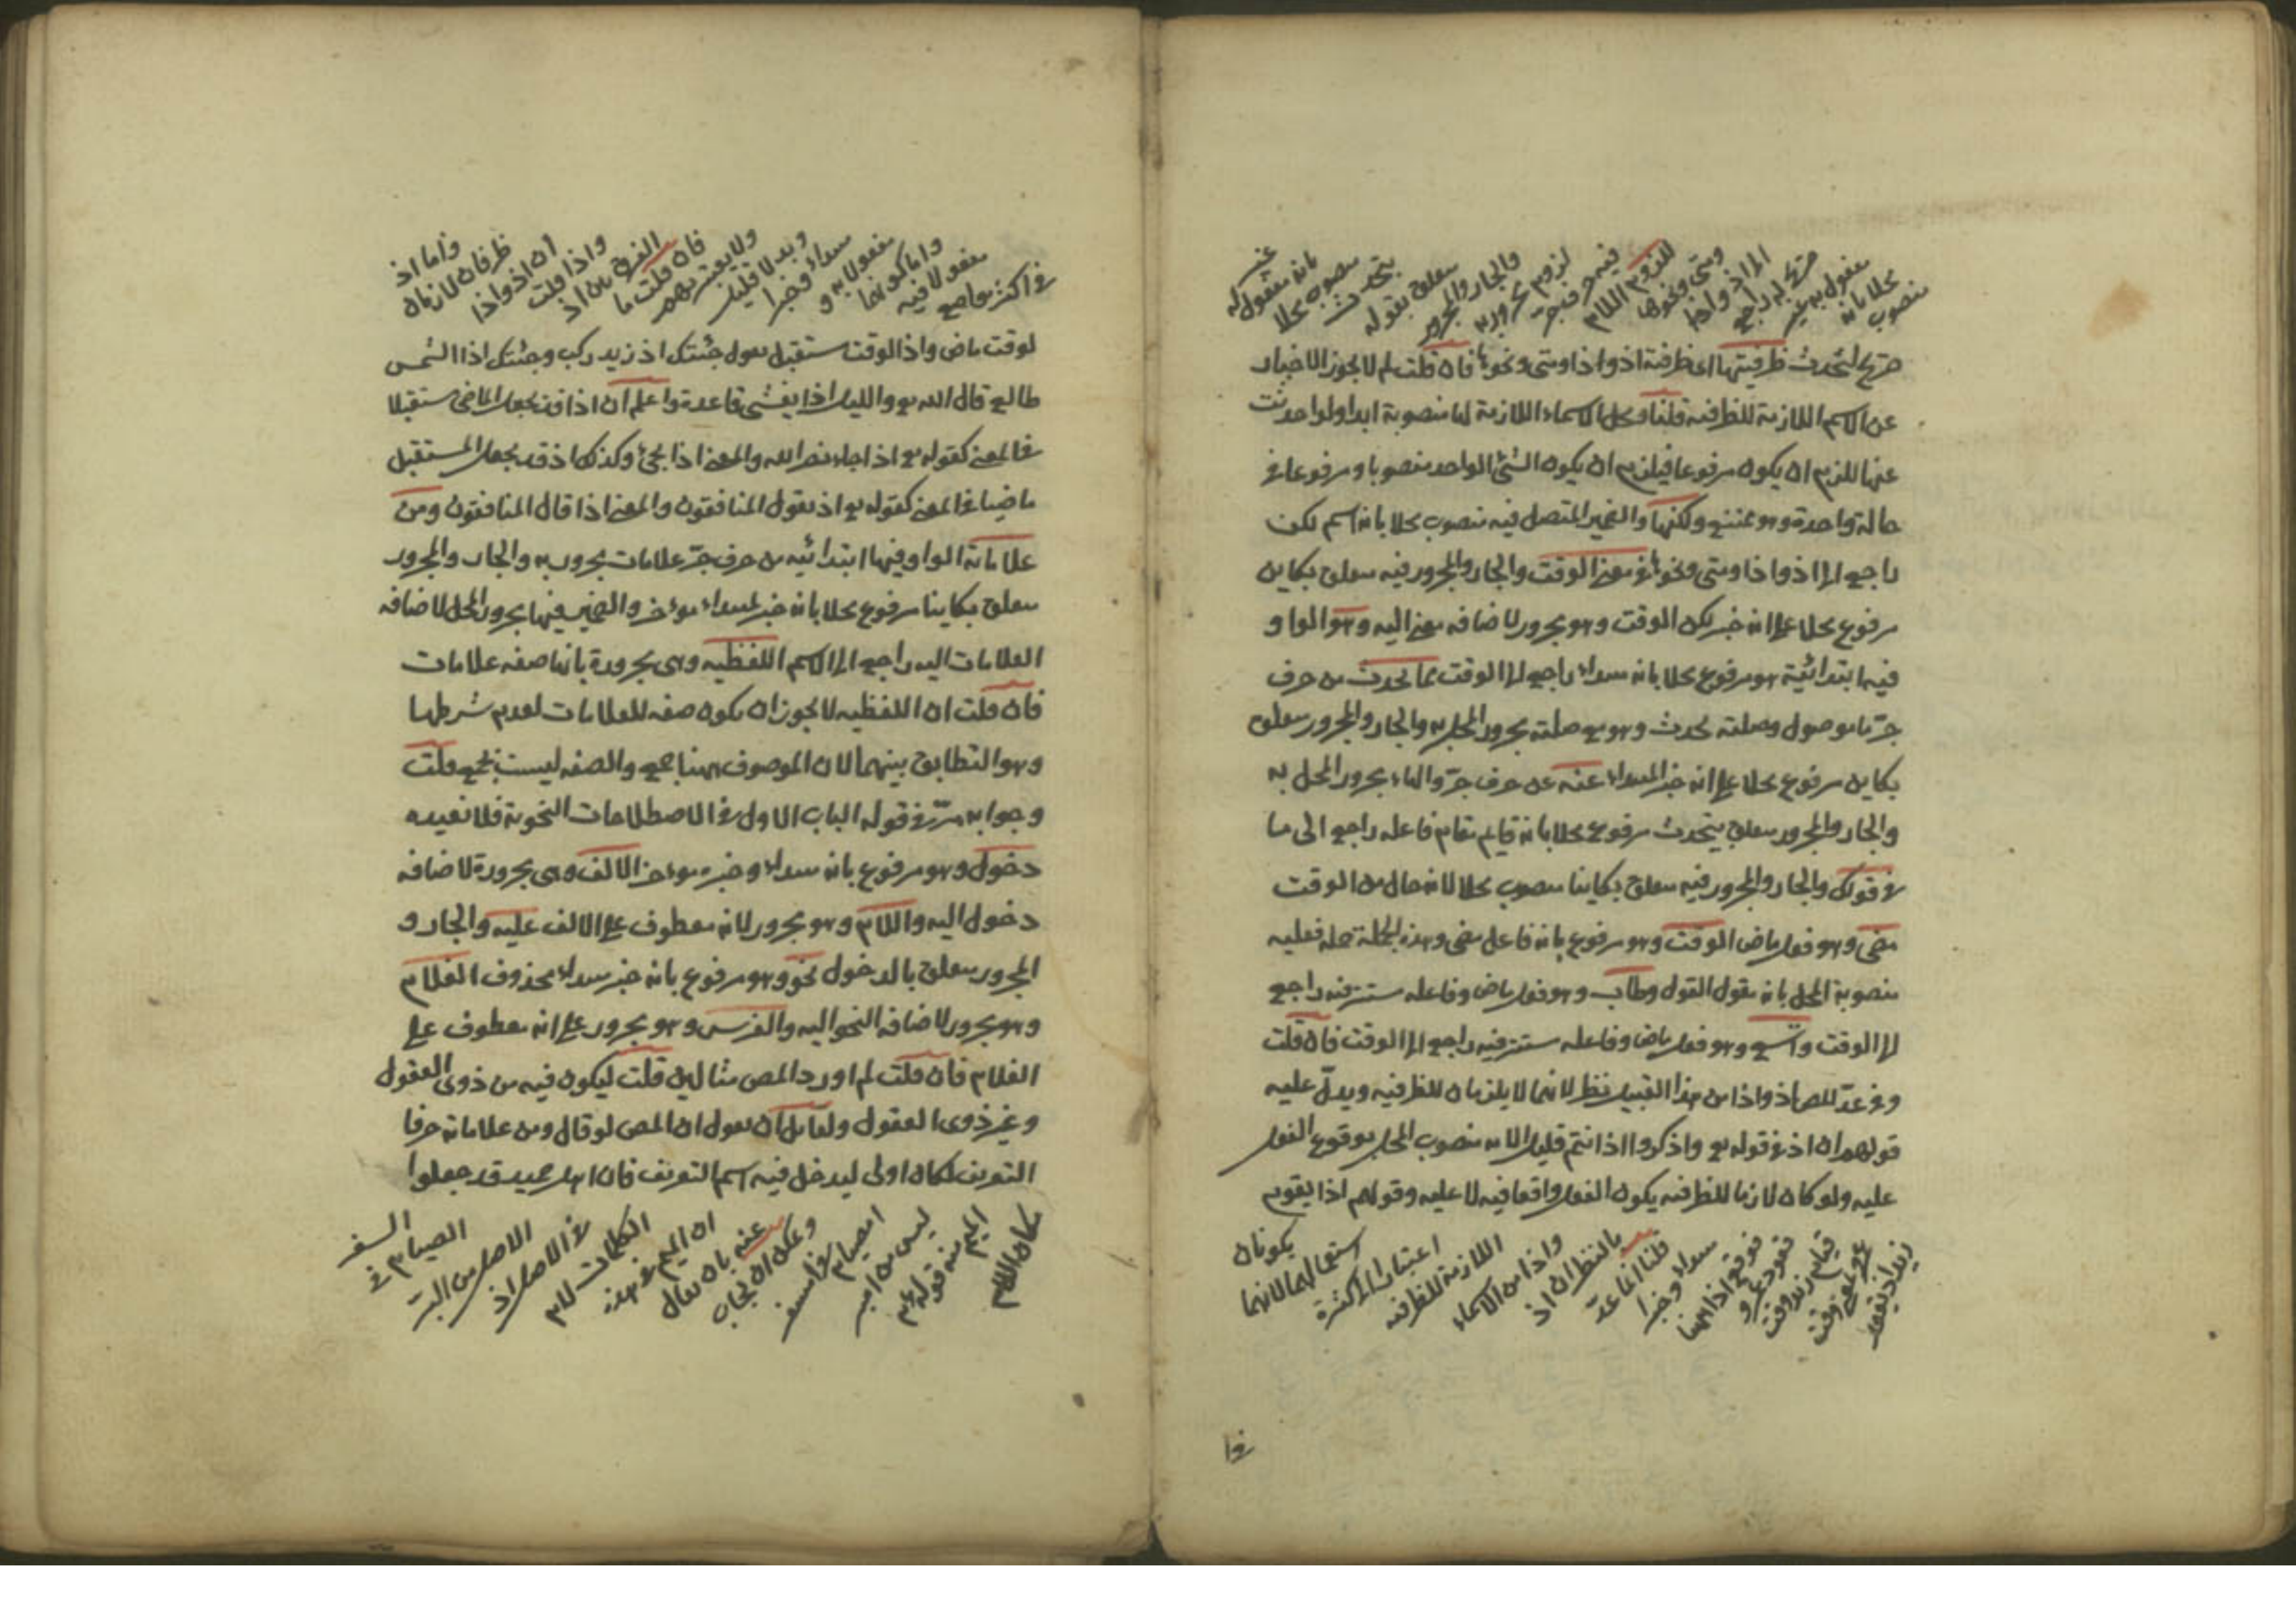 منصوب
محلا بانه
مفعول به غير
صريح له راجع
الى اذ واذا
ومتى ونحوها
للزوم اللام
فيه حرف جر
لزوم مجرور به
والجار والمجرور
متعلق بقوله
يتحدث
منصوب محلا
بانه مفعول له
غير
صريح لتحدث ظرفيتها اى ظرفية اذ واذا ومتى ونحوها فان قلت لم لا يجوز الاخبار
عن الاسم اللازمة للظرفيه قلنا وكل الاسماء اللازمة لها منصوبة ابدا ولو احدثت
عنها للزم ان يكون مرفوعا فيلزم ان يكون الشئ الواحد منصوبا ومرفوعا فى
حالة واحدة وهو ممتنع ولكنها والضمير المتصل فيه منصوب محلا بانه اسم لكن
راجع الى اذ واذا ومتى ونحوها فى معنى الوقت والجار والمجرور فيه متعلق بكاين
مرفوع محلا على انه خبر لكن الوقت وهو مجرور لاضافه معنى اليه وهو الواو
فيها ابتدائية هو مرفوع محلا بانه مبتداء راجع الى الوقت مما يحدث من حرف
جر ما موصول وصلته يحدث وهو مع صلته مجرور المحل به والجار والمجرور متعلق
بكاين مرفوع محلا على انه خبر المبتداء عنه عن حرف جر والهاء مجرور المحل به
والجار والمجرور متعلق بيتحدث مرفوع محلا بانه قايم مقام فاعله راجع الى ما
فى قولك والجار والمجرور فيه متعلق بكاينا منصوب محلا لانه حال من الوقت
مضى وهو فعل ماض الوقت وهو مرفوع بانه فاعل مضى وهذه الجملة جملة فعليه
منصوبة المحل بانه مقول القول وطاب وهو فعل ماض وفاعله مستتر فيه راجع
الى الوقت واتسع وهو فعل ماض وفاعله مستتر فيه راجع الى الوقت فان قلت
وفى عد المص اذ واذا من هذا القبيل نظر لانهما لا يلزمان للظرفيه ويدل عليه
قولهم ان اذ فى قوله تع واذكروا اذ انتم قليل الايه منصوب المحل بوقوع الفعل
عليه ولو كان لازما للظرفيه يكون الفعل واقعا فيه لا عليه وقولهم اذا يقوم
زيد اذ يقعد
عمرو بمعنى وقت
قيام زيد وقت
قعود عمرو
فوقع اذا هنا
مبتداء وخبرا
قلنا انما عد
بالنظر ان اذ
واذا من الاسماء
اللازمة للظرفيه
اعتبارا لاكثرة
استعمالهما لانهما
يكونان
فى ا
فى اكثر مواضع
مفعولا فيه
واما كونهما
مفعولا به و
مبتداء وخبرا
وبدلا قليل
ولا يعتبر بهم
فان قلت ما
الفرق بين اذ
واذا قلت
ان اذ واذا
ظرفان لازمان
واما اذ
لوقت ماض واذا لوقت مستقبل تقول جئتك اذ زيد ركب وجئتك اذا الشمس
طالع قال الله تع والليل اذا يغشى قاعدة واعلم ان اذا قد يجعل الماضى مستقبلا
فى المعنى كقوله تع اذا جاء نصر الله والمعنى اذا يجئ وكذلك اذ قد يجعل المستقبل
ماضيا فى المعنى كقوله تع اذ يقول المنافقون والمعنى اذا قال المنافقون ومن
علاماته الواو فيها ابتدائيه من حرف جر علامات مجرور به والجار والمجرور
متعلق بكاينا مرفوع محلا بانه خبر لمبتداء مؤخر والضمير فيها مجرور المحل لاضافه
العلامات اليه راجع الى الاسم اللفظيه وهى مجرورة بانها صفه علامات
فان قلت ان اللفظيه لا يجوز ان يكون صفه للعلامات لعدم شرطها
وهو التطابق بينهما لان الموصوف ههنا جمع والصفه ليست بجمع قلت
وجوابه مر فى قوله الباب الاول فى الاصطلاحات النحوية فلا نعيده
دخول وهو مرفوع بانه مبتداء وخبره مؤخر الالف وهى مجرورة لاضافه
دخول اليه واللام وهو مجرور لانه معطوف على الالف عليه والجار و
المجرور متعلق بالدخول نحو وهو مرفوع بانه خبر مبتداء محذوف الغلام
وهو مجرور لاضافه النحو اليه والفرس وهو مجرور على انه معطوف على
الغلام فان قلت لم اورد المص مثالين قلت ليكون فيه من ذوى العقول
وغير ذوى العقول ولقايل ان يقول ان المص لو قال ومن علاماته حرفا
التعريف لكان اولى ليدخل فيه اسم التعريف فان اهل حمير قد جعلوا
مكان اللام
الميم منه قوله عم
ليس من امبر
امصيام
فى امسفر
ويمكن ان يجاب
عنه بان يقال
ان الميم فى هذه
الكلمات لام
فى الاصل اذ
الاصل من البر
الصيام فى
السفر